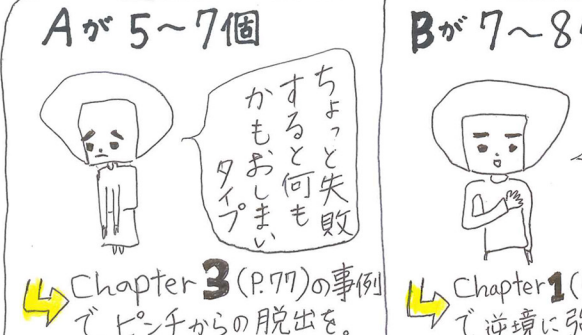 Aが5〜7個
ちょっと失敗
すると何も
かもおしまい
タイプ
Chapter 3 (P.77)の事例
で ピンチからの脱出を。
Bが7〜8
Chapter 1 (
で 逆境に強